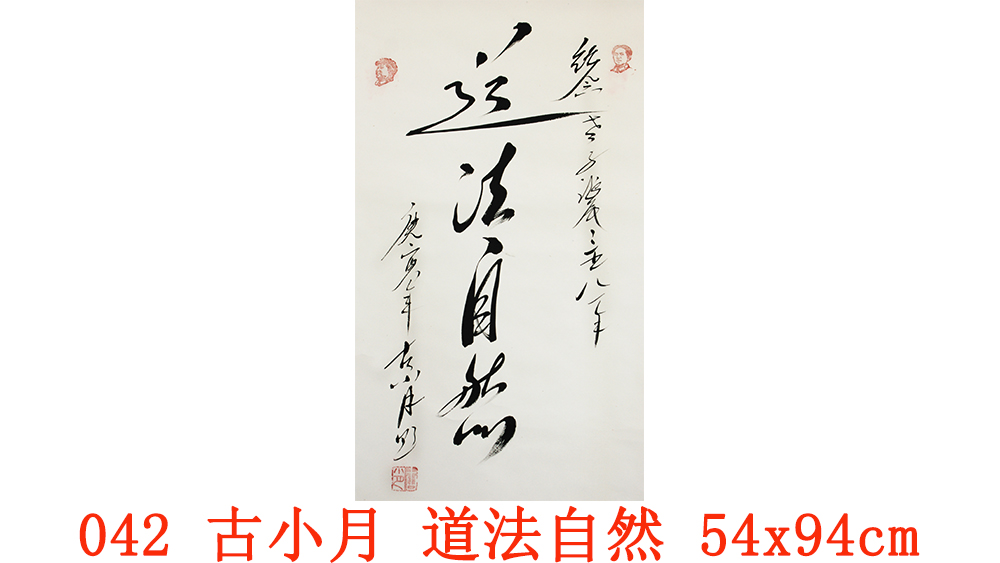 紀念老子誕辰二五八一年
道法自然
庚寅年 古小月书
042 古小月 道法自然 54x94cm